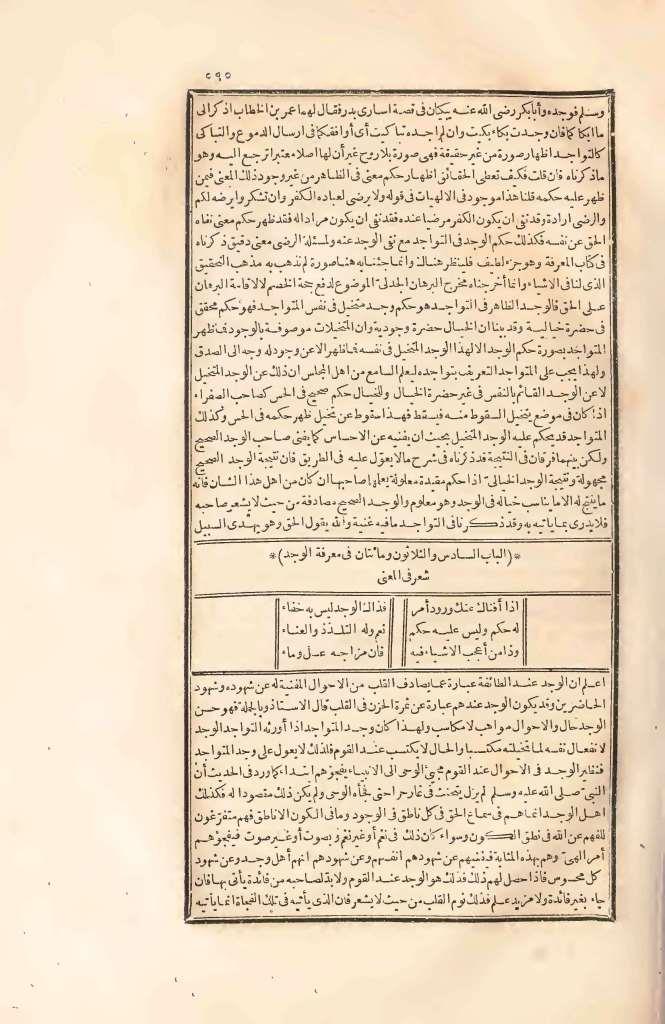 ٥٩٠
وسلم فوجده وأبا بكر رضى الله عنه يبكيان فى قصة اسارى بدر فقال لهما عمر بن الخطاب اذكر الى
ما أبكاكما فان وجدت بكاء بكيت وان لم اجده تباكيت أى أوافقكما فى ارسال الدموع والتباكى
كالتواجد اظهار صورة من غير حقيقة فهى صورة بلا روح غير أن لها اصلا معتبرا ترجع اليه وهو
ما ذكرناه فان قلت فكيف تعطى الحقائق اظهار حكم معنى فى الظاهر من غير وجود ذلك المعنى فيمن
ظهر عليه حكمه قلنا هذا موجود فى الالهيات فى قوله ولا يرضى لعباده الكفر وان تشكروا يرضه لكم
والرضى ارادة وقد نفى ان يكون الكفر مرضيا عنده فقد نفى ان يكون مرادا له فقد ظهر حكم معنى نفاه
الحق عن نفسه فكذلك حكم الوجد فى التواجد مع نفى الوجد عنه ولمسئلة الرضى معنى دقيق ذكرناه
فى كتاب المعرفة وهو جزء لطيف فلينظر هنالك وانما جئنا به هنا صورة لم نذهب به مذهب التحقيق
الذى لنا فى الاشياء وانما أخرجناه مخرج البرهان الجدلى الموضوع لدفع حجة الخصم لا لاقامة البرهان
على الحق فالوجد الظاهر فى التواجد هو حكم وجد متخيل فى نفس المتواجد فهو حكم محقق
فى حضرة خيالية وقد بينا ان الخيال حضرة وجودية وان المتخيلات موصوفة بالوجود فظهر
المتواجد بصورة حكم الوجد الا لهذا الوجد المتخيل فى نفسه فما ظهر الا عن وجود له وجه الى الصدق
ولهذا يجب على المتواجد التعريف بتواجده ليعلم السامع من اهل المجلس ان ذلك عن الوجد المتخيل
لا عن الوجد القائم بالنفس فى غير حضرة الخيال وللخيال حكم صحيح فى الحس كصاحب الصفراء
اذا كان فى موضع يتخيل السقوط منه فيسقط فهذا سقوط عن تخيل ظهر حكمه فى الحس وكذلك
المتواجد قد يحكم عليه الوجد المتخيل بحيث ان يفنيه عن الاحساس كما يفنى صاحب الوجد الصحيح
ولكن بينهما فرقان فى النتيجة قد ذكرناه فى شرح ما لا يعول عليه فى الطريق فان نتيجة الوجد الصحيح
مجهولة ونتيجة الوجد الخيالى اذا حكم مقيدة معلولة يعلمها صاحبها ان كان من اهل هذا الشان فانه
ما ينتج له الا ما يناسب خياله فى الوجد وهو معلوم والوجد الصحيح مصادفة من حيث لا يشعر صاحبه
فلا يدرى بما يأتيه به وقد ذكرنا فى التواجد ما فيه غنية والله يقول الحق وهو يهدى السبيل
*(الباب السادس والثلاثون ومائتان فى معرفة الوجد)*
شعر فى المعنى
اذا أفناك عنك ورود أمر فذاك الوجد ليس به خفاء
له حكم وليس عليه حكم نعم وله التلذذ والعناء
وذا من أعجب الاشياء فيه فان مزاجه عسل وماء
اعلم ان الوجد عند الطائفة عبارة عما يصادف القلب من الاحوال المفنية له عن شهوده وشهود
الحاضرين وقد يكون الوجد عندهم عبارة عن ثمرة الحزن فى القلب قال الاستاذ وبالجملة فهو حسن
الوجد حال والاحوال مواهب لا مكاسب ولهذا كان وجد المتواجد اذا أورثه التواجد الوجد
لانفعال نفسه لما تخيلته مكتسبا والحال لا يكتسب عند القوم فلذلك لا يعول على وجد المتواجد
فنظير الوجد فى الاحوال عند القوم مجىء الوحى الى الانبياء يفجؤهم ابتداء كما ورد فى الحديث أن
النبى صلى الله عليه وسلم لم يزل يتحنث فى غار حرا حتى فجأه الوحى ولم يكن ذلك مقصودا له فكذلك
اهل الوجد انما هم فى سماع الحق فى كل ناطق فى الوجود وما فى الكون الا ناطق فهم متفرغون
للفهم عن الله فى نطق الكون وسواء كان ذلك فى نغم أو غير نغم وبصوت أو غير صوت فيفجؤهم
أمر الهى وهم بهذه المثابة فيفنيهم عن شهودهم انفسهم وعن شهودهم انهم أهل وجد وعن شهود
كل محسوس فاذا حصل لهم ذلك فذلك هو الوجد عند القوم ولا بد لصاحبه من فائدة يأتى بها فان
جاء بغير فائدة ولا مزيد علم فذلك نوم القلب من حيث لا يشعر فان الذى يأتيه فى تلك الفجأة انما يأتيه